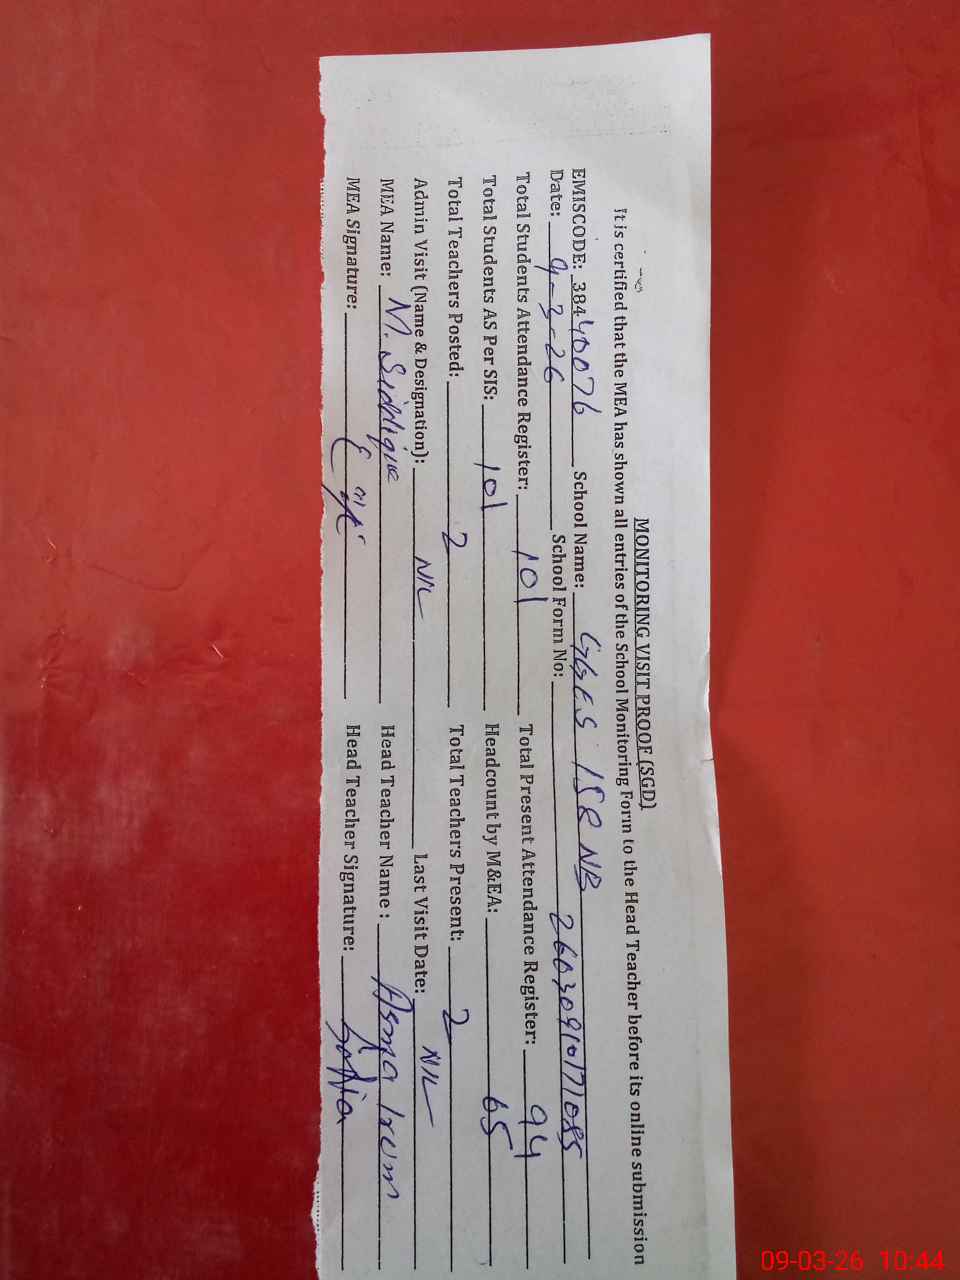 MONITORING VISIT PROOF (SGD)
It is certified that the MEA has shown all entries of the School Monitoring Form to the Head Teacher before its online submission
EMISCODE: 38440076 School Name: GGES 158 NB
Date: 9-3-26 School Form No: 26030910171085
Total Students Attendance Register: 101 Total Present Attendance Register: 94
Total Students AS Per SIS: 101 Headcount by M&EA: 65
Total Teachers Posted: 2 Total Teachers Present: 2
Admin Visit (Name & Designation): NIL Last Visit Date: NIL
MEA Name: M. Siddique Head Teacher Name : Asma Irum
MEA Signature: Head Teacher Signature:
09-03-26 10:44